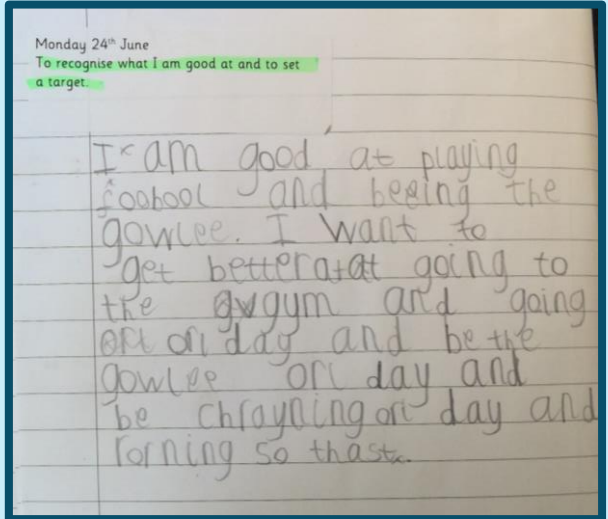 Monday 24th June
To recognise what I am good at and to set
a target.
I am good at playing
foobool and beeing the
gowlee. I want to
get better at at going to
the gym and going
orl day and be the
gowlee orl day and
be chrayning orl day and
rorning so thast.